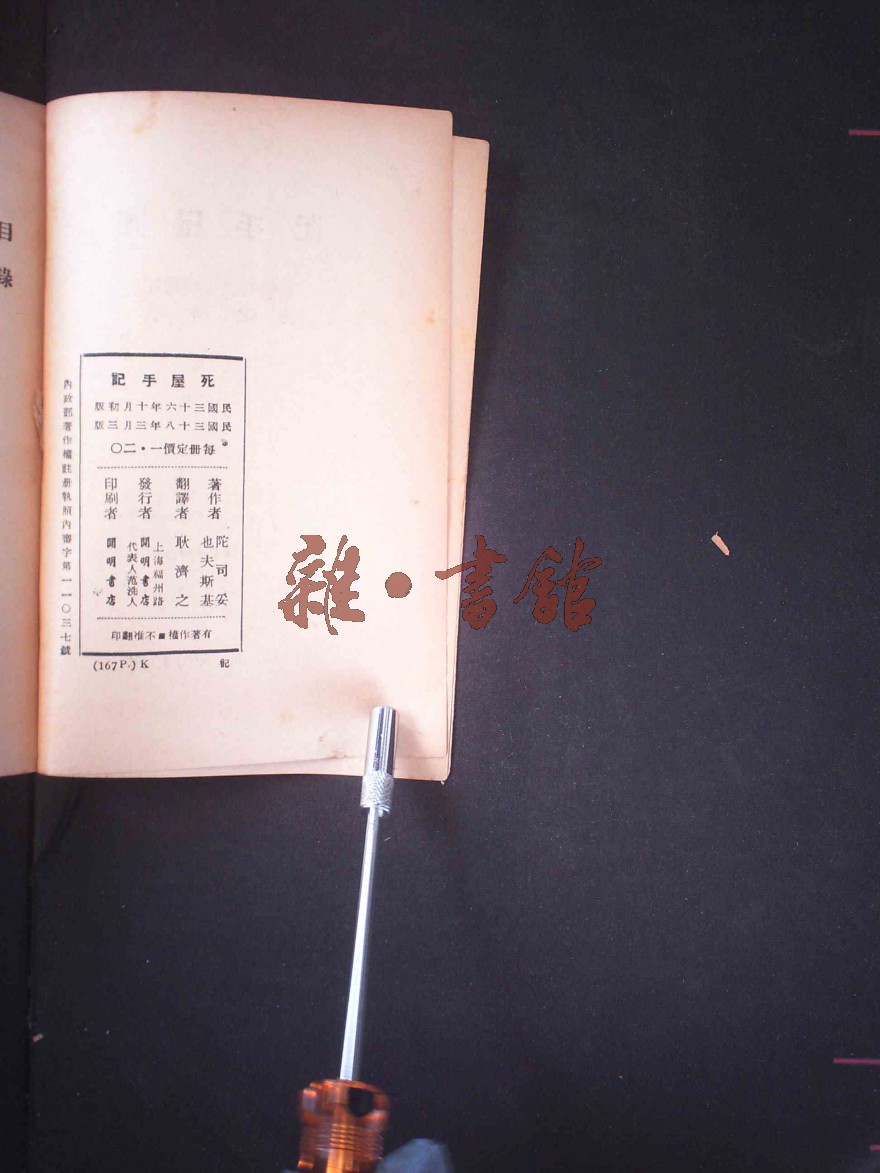 死屋手記
民國三十六年十月初版
民國三十八年三月三版
每冊定價一・二〇
著作者 陀司妥也夫斯基
翻譯者 耿濟之
發行者 上海福州路
開明書店
代表人范洗人
印刷者 開明書店
有著作權■不准翻印
(167P.) K 記
內政部著作權註冊執照內審字第一一〇三七號
目錄
雜・書館